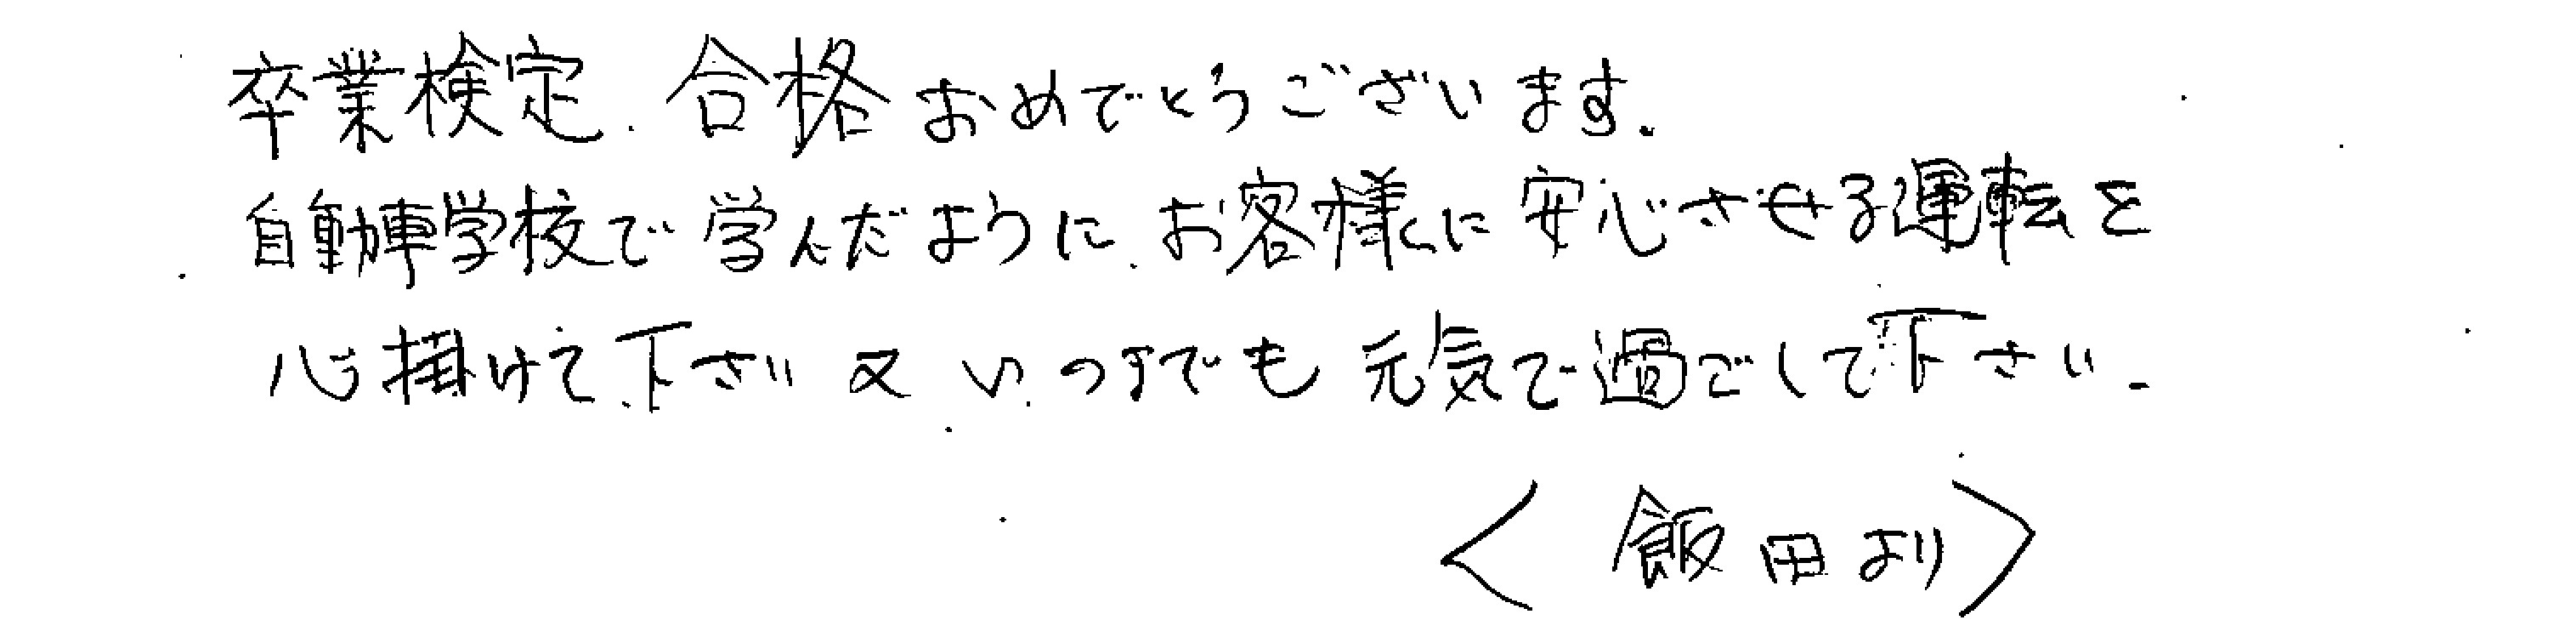 卒業検定.合格おめでとうございます.
自動車学校で学んだように.お客様に安心させる運転を
心掛けて下さい又いつまでも元気で過ごして下さい.
<飯田より>